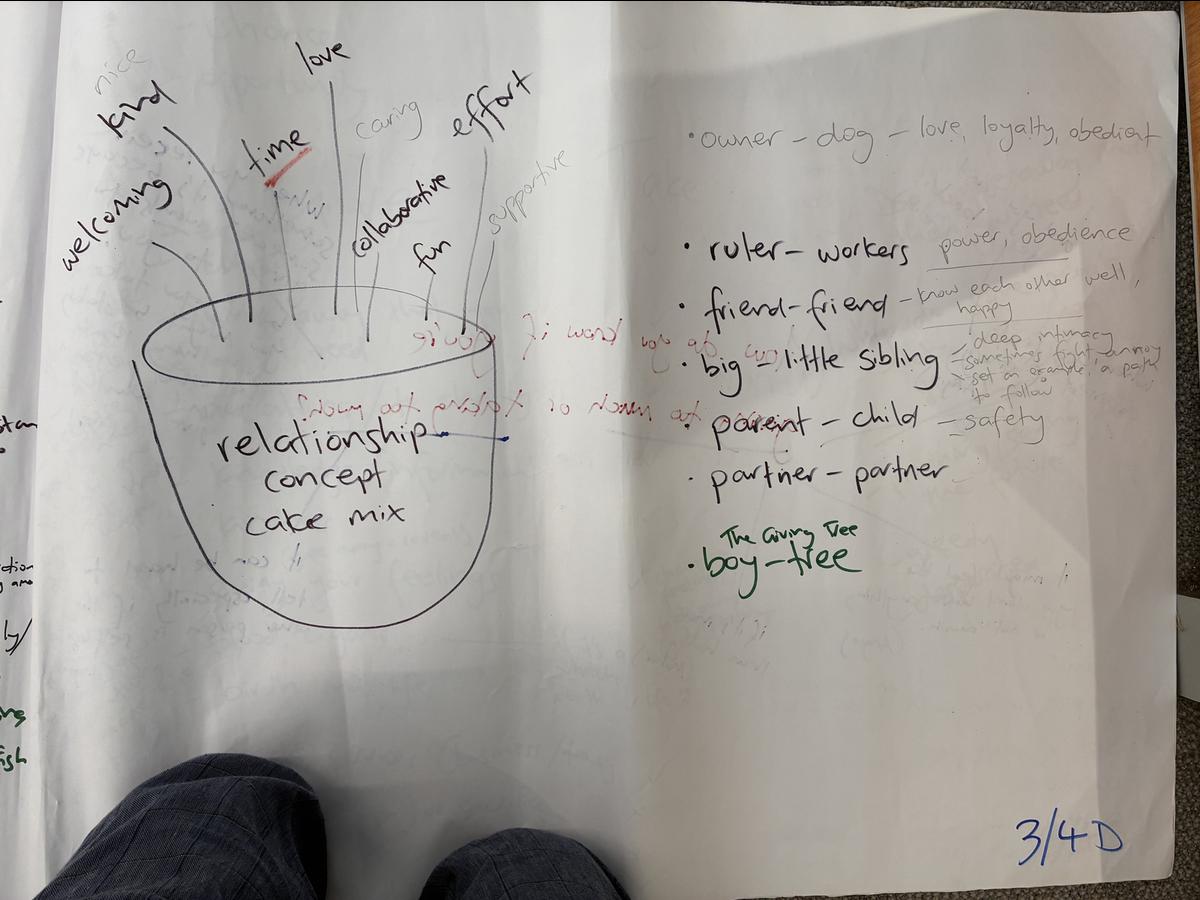 nice
kind
welcoming
time
love
caring
collaborative
effort
fun
supportive
relationship
concept
cake mix
• owner - dog - love, loyalty, obedient
• ruler - workers power, obedience
• friend-friend - know each other well,
happy
• big - little sibling - deep intimacy
- sometimes fight, annoy
- set an example, a path
to follow
• parent - child - safety
• partner - partner
The Giving Tree
• boy-tree
3/4 D